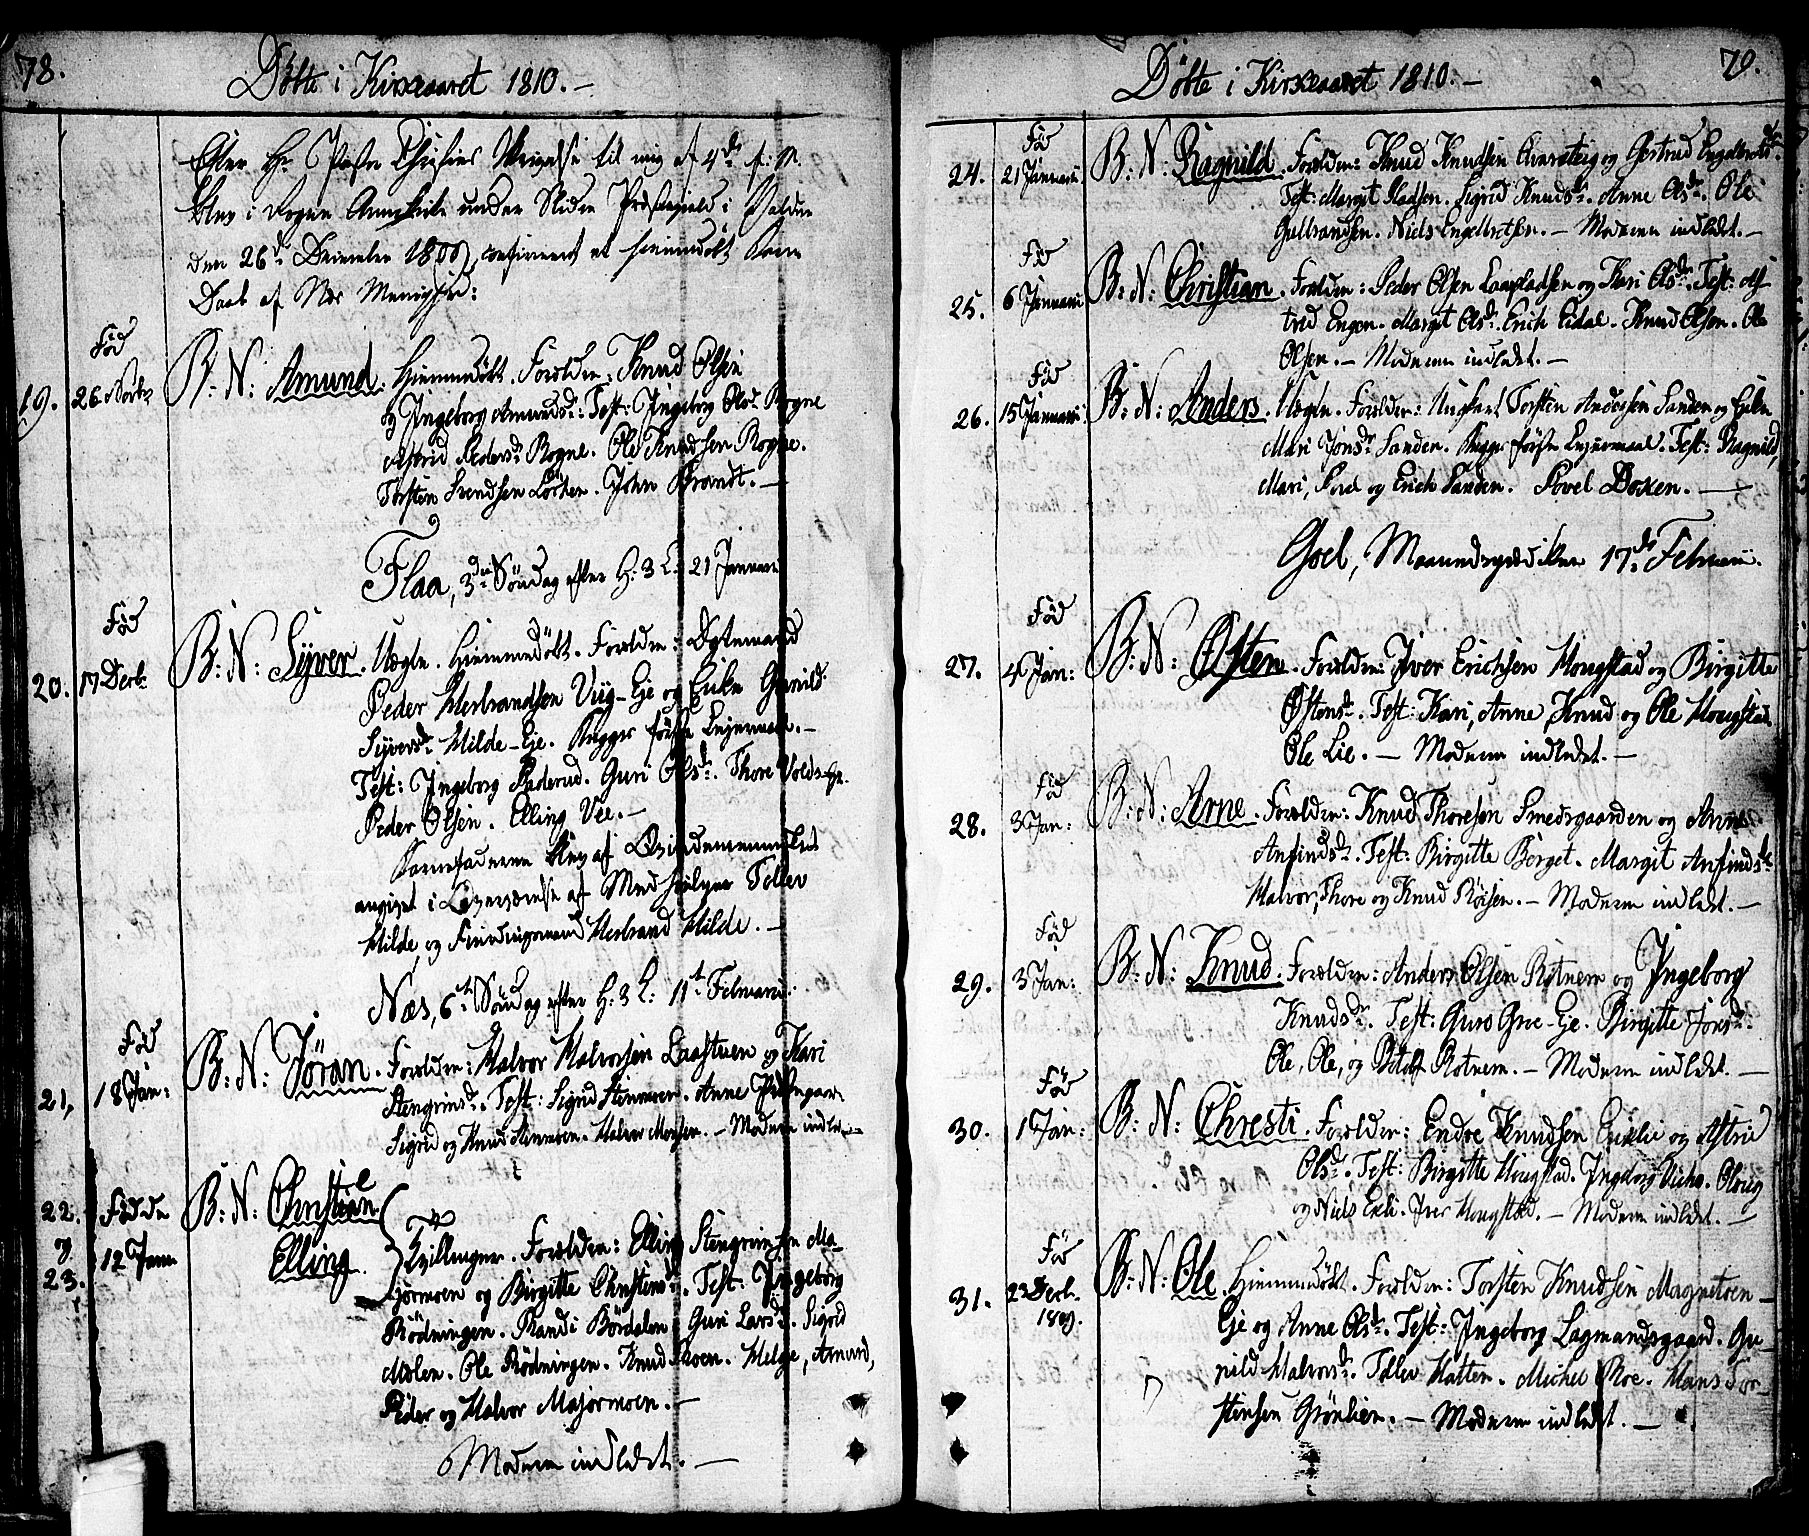 78.
Döbte i Kirkeaaret 1810.-
Efter Hr. Pastor Thjesens Skrivelse til mig af 4de f: M.
blev i Vogne Annexkirke under Slidre Præstegield i Valders
den 26de December 1809, confirmeret et hiemmedöbt Barn
Daab af Næs Menighed:
Fød
19. 26 Novbr B: N: Amund. Hiemmedöbt. Forældre: Knud Olsen
og Ingeborg Amundsdr: Test: Ingeborg Olsdr Rogne
Astrid Pedersdr Rogne. Ole Knudsen Rogne.
Torsten Svendsen Löcken. John Brandt. -
Flaa, 3die Söndag efter H: 3 K: 21 Januar
Fød
20. 17 Decbr: B: N: Syver. Uægte. Hiemmedöbt. Forældre: Dattemand
Peder Herbrandsen Viig-Eje og Enke Gunild
Syversdr Hilde-Eje. Begges første Lejermaal. -
Test: Ingeborg Paderud. Guri Olsdr. Thore Volds-Eje.
Peder Olsen. Elling Vee. -
Barnefaderen blev af Qvindemennesket
angivet i Overværelse af Medhjælper Tollev
Hilde, og Fürdingsmand Herbrand Hilde. -
Næs, 6te Söndag efter H: 3 K: 11te Februarii.
Fød
21. 18 Jan: B: N: Jöran. Forældre: Halvor Halvorsen Laastuen og Kari
Stengrimsdr. Test: Sigrid Stenmoen. Anne Præstegaar.
Sigrid og Knud Stenmoen. Halvor Monsen. - Moderen indledt
22. Fødde B: N: Christian
og 12 Janu Elling. Tvillinger. Forældre: Elling Stengrimsen Ma-
23. jormoen og Birgitte Christensdr. Test: Ingeborg
Rödningen. Randi Bördalen. Guri Larsdr. Sigrid
Molen. Ole Rödningen. Knud Moen. Helge, Amund,
Peder og Halvor Majormoen. -
Moderen indledt. -
79.
Döbte i Kirkeaaret 1810. -
Fød
24. 21 Januarii B: N: Ragnild. Forældre: Knud Knudsen Aversteig og Gertrud Engelbretsdr.
Test: Margit Hadsen. Sigrid Knudsdr. Anne Olsdr. Ole
Gulbrandsen. Niels Engelbretsen. - Moderen indledt. -
Fød
25. 6 Januarii B: N: Christian. Forældre: Peder Olsen Laapladsen og Kari Olsdr. Test: As-
trid Engen. Margit Olsdr. Erich Eidal. Knud Olsen. Ole
Olsen. - Moderen indledt. -
Fød
26. 15 Januarii B: N: Anders. Uægte. Forældre: Ungkarl Torsten Andersen Sanden og Enke
Mari Jonsdr Sanden. Begges første Lejermaal. Test: Ragnild,
Mari, Povel og Erich Sanden. Povel Doxen. -
Goel, Maanedsprædiken 17de Februarii.
Fød
27. 4 Jan: B: N: Østen. Forældre: Iver Erichsen Hougstad og Birgitte
Østensdr. Test: Kari, Anne, Knud og Ole Hougstad.
Ole Lie. - Moderen indledet. -
Fød
28. 3 Jan: B: N: Arne. Forældre: Knud Thoresen Smedsgaarden og Anne
Anfindsdr. Test: Birgitte Berget. Margit Anfindsdr.
Halvor, Thore og Knud Röisen. - Moderen indledt. -
Fød
29. 3 Jan: B: N: Knud. Forældre: Anders Olsen Rotnem og Ingeborg
Knudsdr. Test: Guro Groe-Eje. Birgitte Jonsdr.
Ole, Ole, og Botolf Rotnem. - Moderen indledt. -
Fød
30. 1 Jan: B: N: Chresti. Forældre: Endre Knudsen Exelie og Astrid
Olsdr. Test: Birgitte Hougstad. Ingeborg Viche. Oloug
og Niels Exli. Iver Hougstad. - Moderen indledt. -
Fød
31. 23 Decbr. 1809. B: N: Ole. Hiemmedöbt. Forældre: Torsten Knudsen Magnetoen-
Eje og Anne Olsdr. Test: Ingeborg Lagmandsgaard. Gu-
nild Halvorsdr. Tollev Hatten. Michel Roe. Hans Tor-
stensen Grönlien. - Moderen indledt. -